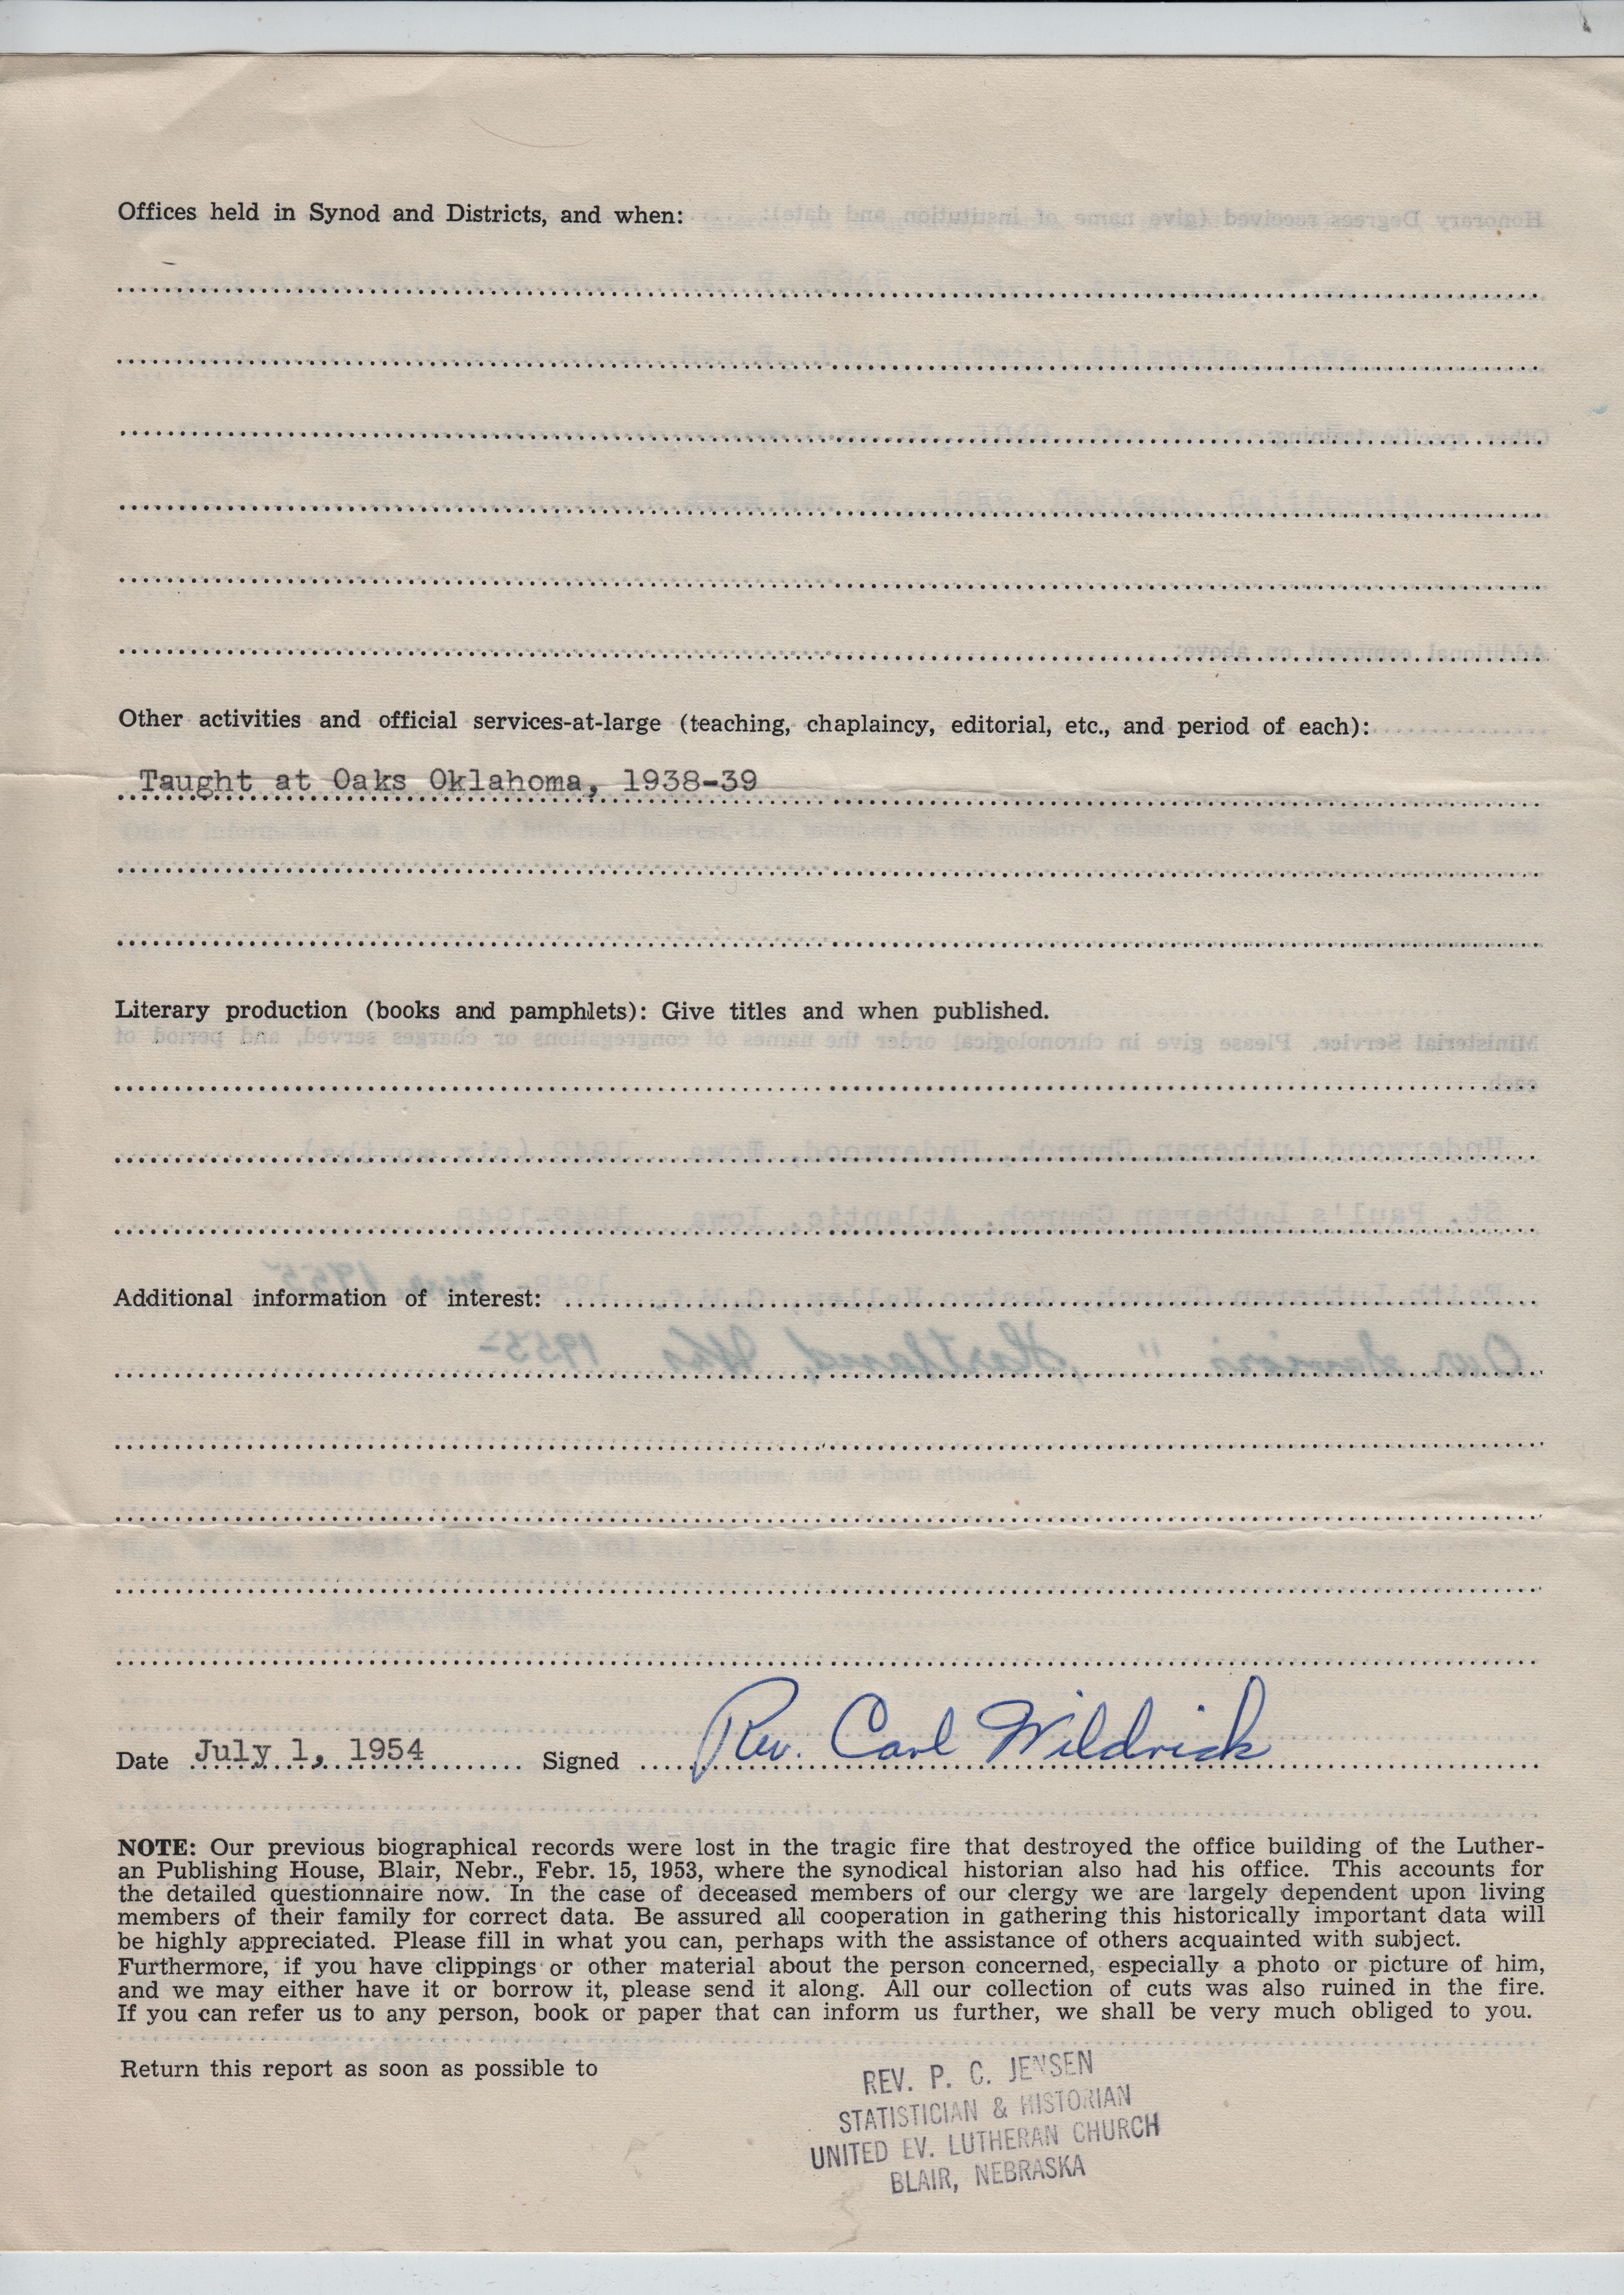 Offices held in Synod and Districts, and when:
Other activities and official services-at-large (teaching, chaplaincy, editorial, etc., and period of each):
Taught at Oaks Oklahoma, 1938-39
Literary production (books and pamphlets): Give titles and when published.
Additional information of interest:
Date July 1, 1954 Signed Rev. Carl Wildrick
NOTE: Our previous biographical records were lost in the tragic fire that destroyed the office building of the Luther-
an Publishing House, Blair, Nebr., Febr. 15, 1953, where the synodical historian also had his office. This accounts for
the detailed questionnaire now. In the case of deceased members of our clergy we are largely dependent upon living
members of their family for correct data. Be assured all cooperation in gathering this historically important data will
be highly appreciated. Please fill in what you can, perhaps with the assistance of others acquainted with subject.
Furthermore, if you have clippings or other material about the person concerned, especially a photo or picture of him,
and we may either have it or borrow it, please send it along. All our collection of cuts was also ruined in the fire.
If you can refer us to any person, book or paper that can inform us further, we shall be very much obliged to you.
Return this report as soon as possible to
REV. P. C. JENSEN
STATISTICIAN & HISTORIAN
UNITED EV. LUTHERAN CHURCH
BLAIR, NEBRASKA